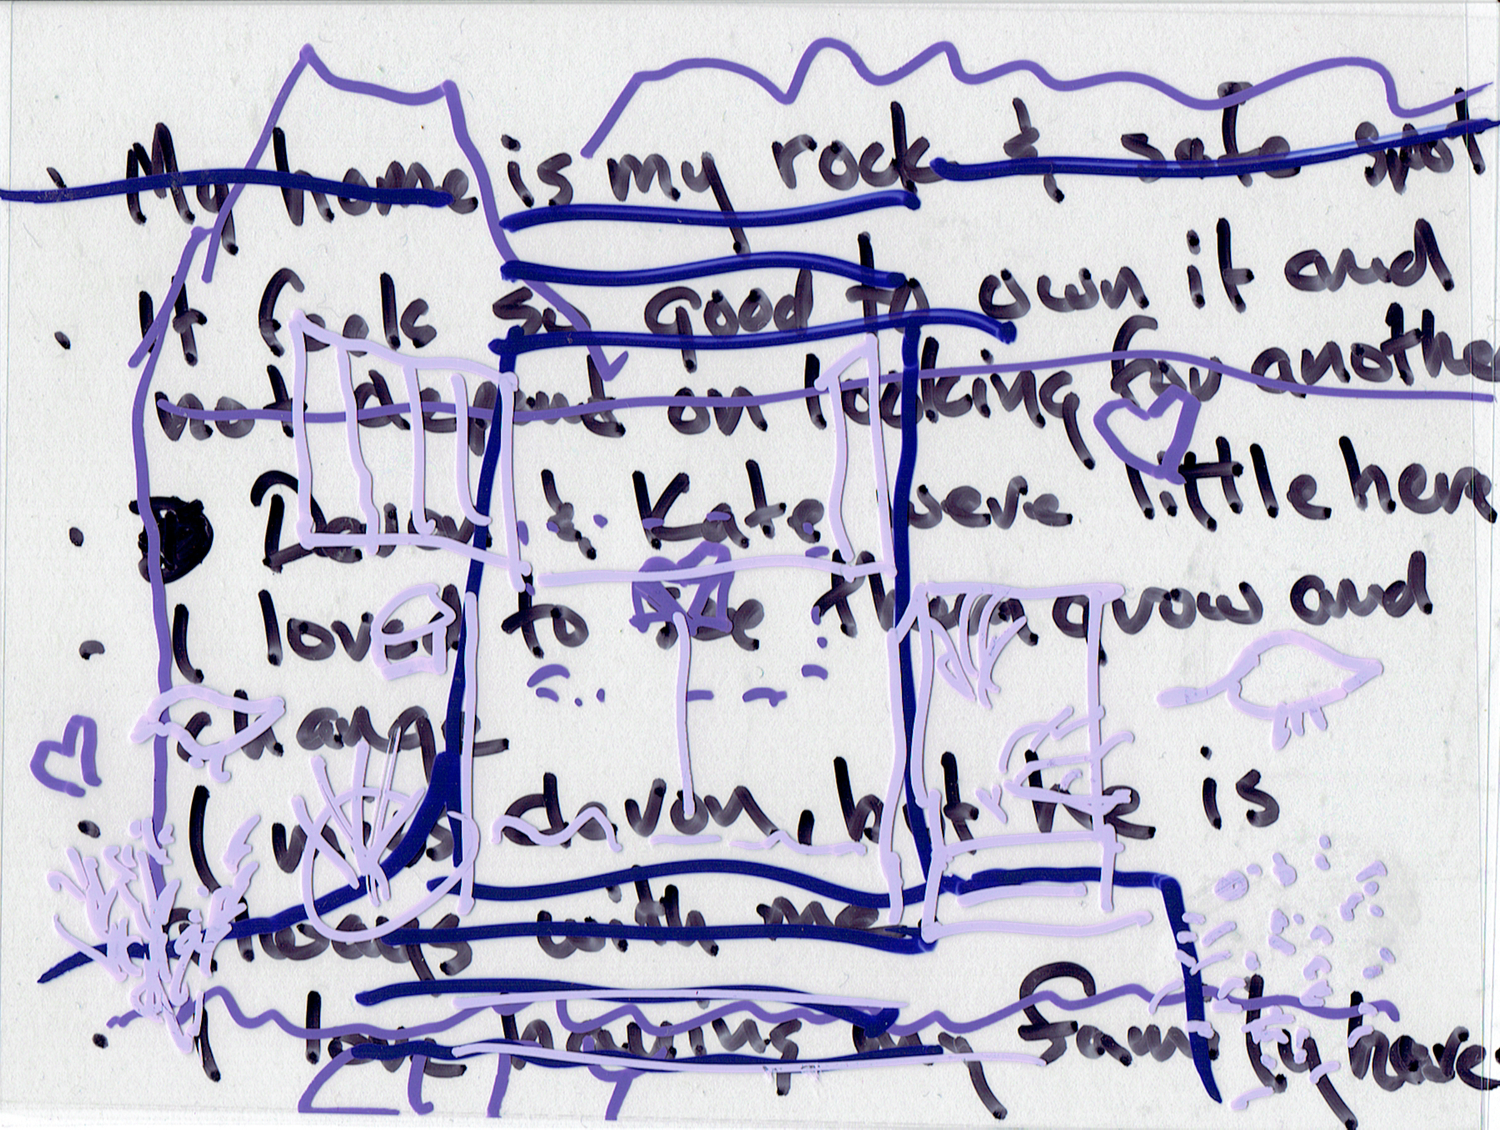 · My home is my rock & safe spot
· It feels so good to own it and
not depend on looking for another
· Devon & Kate were little here
· I loved to see them grow and
change
· I miss devon, but he is
always with me
· I love having my family here